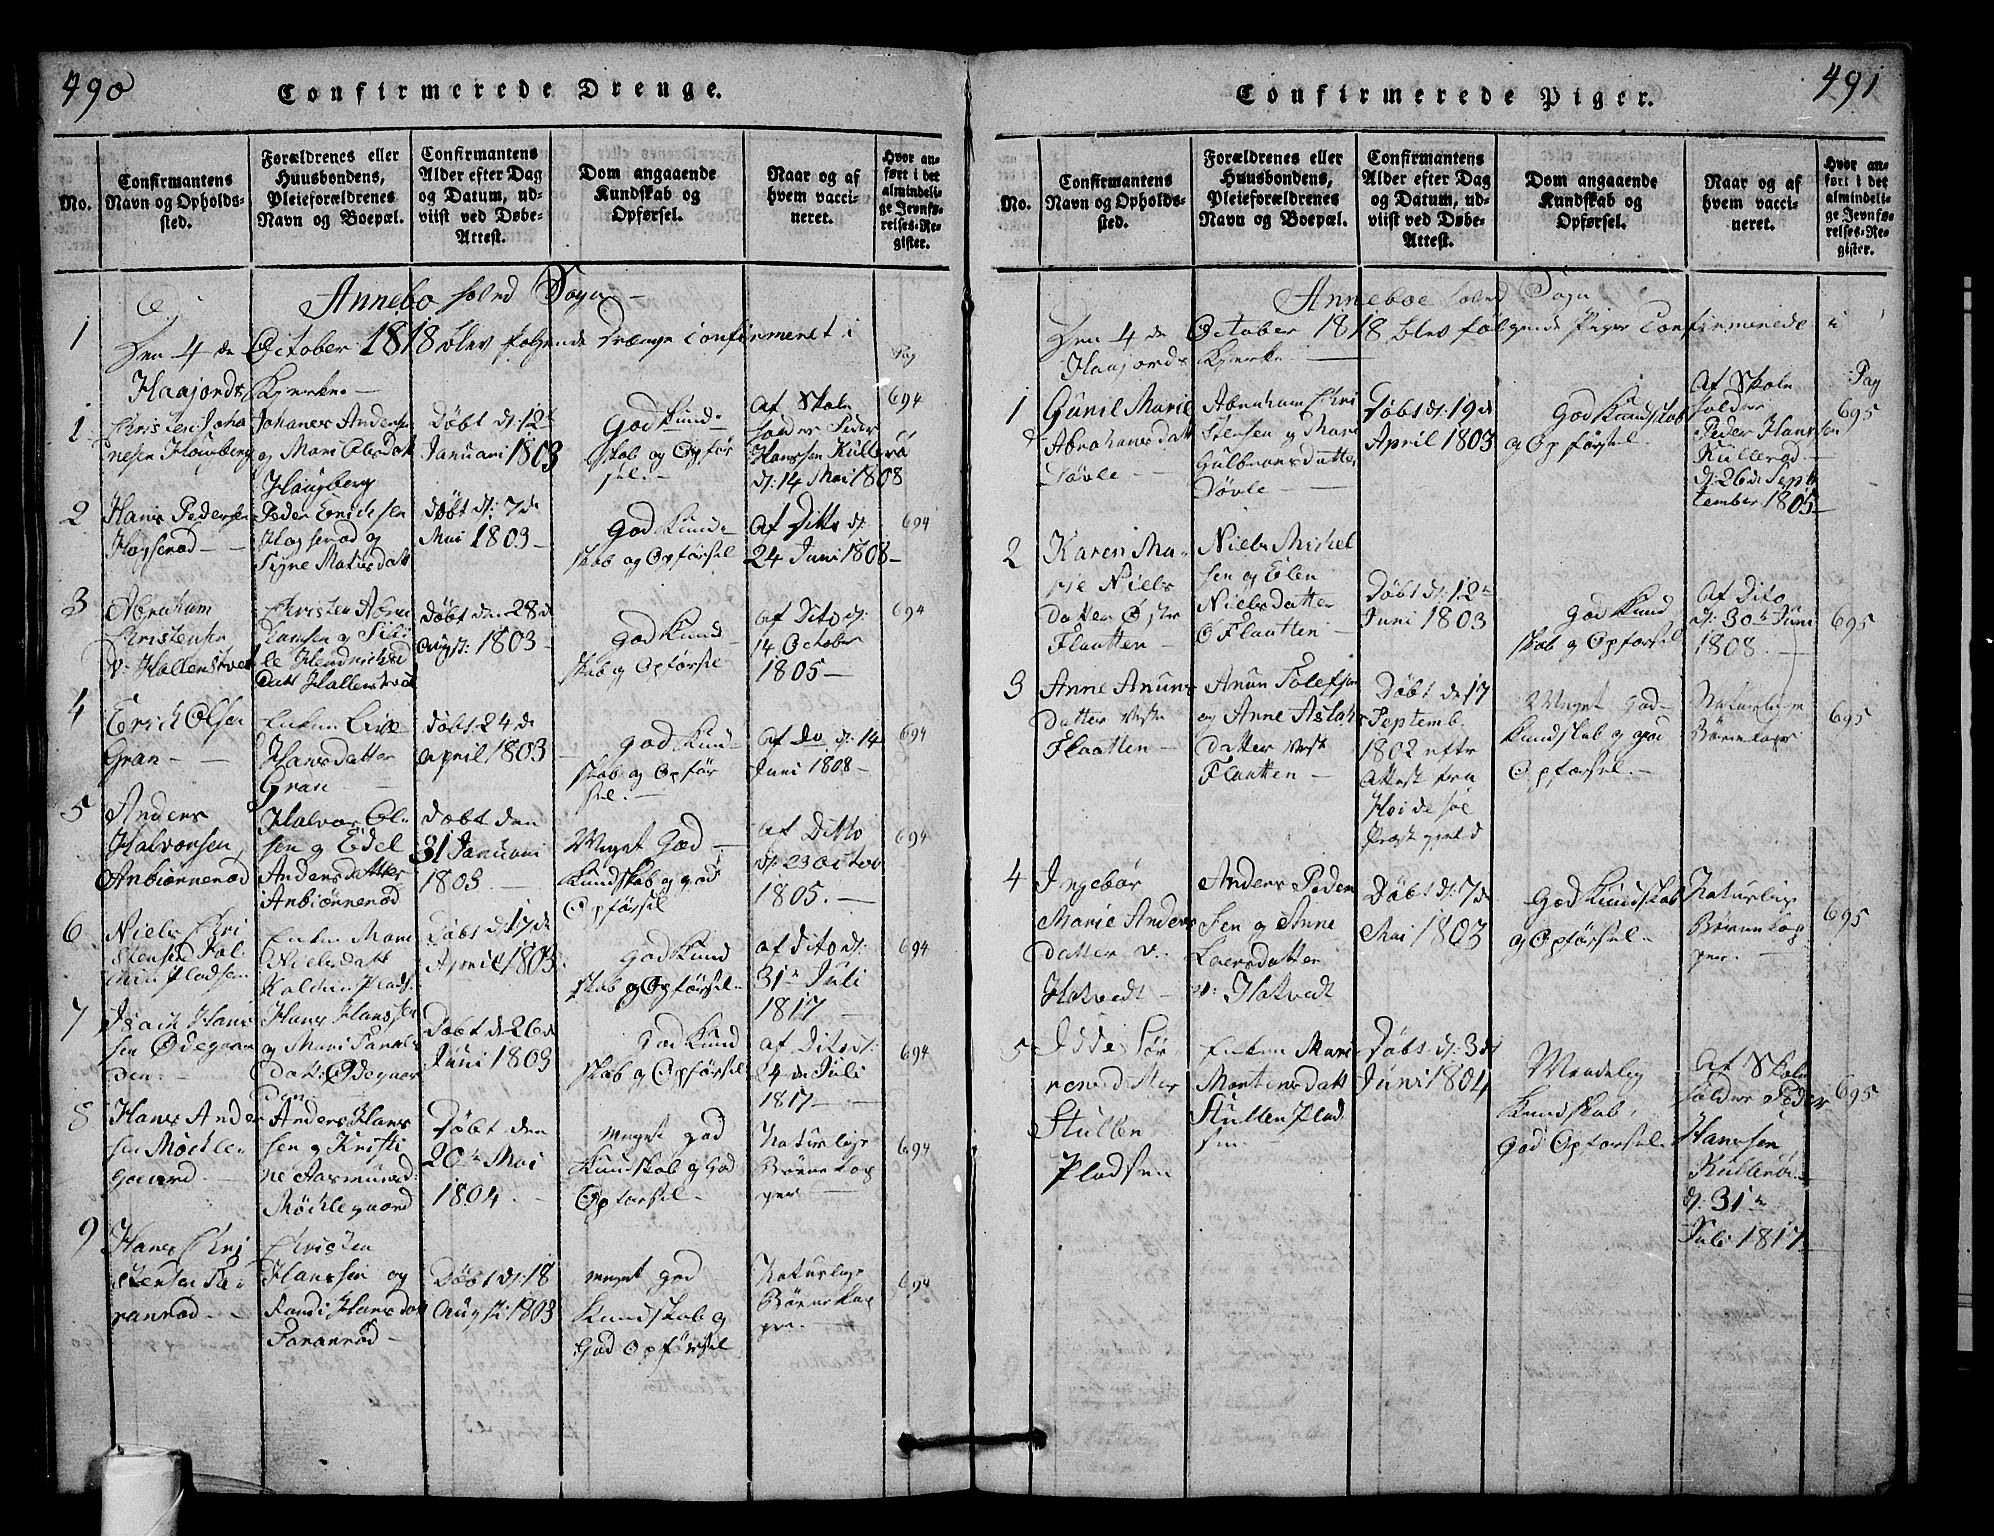 490
Confirmerede Drenge.
No.
Confirmantens
Navn og Opholds-
sted.
Forældrenes eller
Huusbondens,
Pleieforældrenes
Navn og Boepæl.
Confirmantens
Alder efter Dag
og Datum, ud-
viist ved Døbe-
Attest.
Dom angaaende
Kundskab og
Opførsel.
Naar og af
hvem vacci-
neret.
Hvor an-
ført i det
almindeli-
ge Jevnfø-
relses-Re-
gister.
Annebo Sogn
Den 4de October 1818 blev følgende Drenge Confirmeret i
Kjerke
Pag
1
Christen Joha
nesen Haugberg
Johanes Andersen
og Mari Olesdatt
Haugberg
Døbt d: 12te
Januari 1803
God Kund-
skab og Opfør
sel.
Af Skole
holder Peder
Hanssen Kullerød
d: 14 Mai 1808
694
2
Hans Pedersen
Hogserød
Peder Erichsen
Hogserød og
Signe Matisdatt
Døbt d: 7de
Mai 1803
God Kund-
skab og Opførsel
Af Ditto d:
24 Juni 1808
694
3
Abraham
Christensen
v: Hallenstvet
Christen Abra
hamsen og
Hendrichs
Datt Hallenstvet
Døbt den 28de
Augst: 1803
God Kund
skab og Opførsel
Af Dito d:
14 October
1805
694
4
Erich Olsen
Gran
Enken
Hansdatter
Gran
Døbt: 24de
April 1803
God Kund-
skab og Opfør
sel.
Af Do d: 14
Juni 1808
694
5
Anders
Halvorsen
Anbiørnerød
Halvor Ol-
sen og Edel
Andersdatter
Anbiørnerød
Døbt den
31 Januari
1803
Meget God
Kundskab og god
Opførsel
Af Ditto
d: 23 Octob
1805.
694
6
Niels Chri
stensen
Pladsen
Enken Mari
Nielsdatt
Plads.
Døbt d: 17de
April 1803
God Kund
skab og Opførsel
af Dito d:
31te Juli
1817
694
7
Isach Hans
sen Ødegaar
den.
Hans Hanssen
og Mari
Datt: Ødegaar
den
Døbt d: 26de
Juni 1803
God Kund
skab og Opførsel
af Dito d:
4de Juli
1817
694
8
Hans Ander
sen Møchle-
gaard
Anders Hans
sen og Kristi
ne Aasmunsd:
Møchlegaard
Døbt den
20te Mai
1804
meget god
Kundskab og God
Opførsel
Naturlige
Børne Kop
per
694
9
Hans Chri
stensen Fa-
ranrød
Christen
Hanssen og
Randi Hansdatt
Faranrød
Døbt d: 18
Augst: 1803
meget god
Kundskab og
God Opførsel
Naturlige
Børne Kop
per.
694
491
Confirmerede Piger.
No.
Confirmantens
Navn og Opholds-
sted.
Forældrenes eller
Huusbondens,
Pleieforældrenes
Navn og Boepæl.
Confirmantens
Alder efter Dag
og Datum, ud-
viist ved Døbe-
Attest.
Dom angaaende
Kundskab og
Opførsel.
Naar og af
hvem vacci-
neret.
Hvor an-
ført i det
almindeli-
ge Jevnfø-
relses-Re-
gister.
Anneboe Sogn
Den 4de October 1818 blev følgende Piger Confirmerede i
Kjerke
Pag
1
Gunil Marie
Abrahamsdatt
Døvle
Abraham Chri
stensen og Mari
Gulbransdatter
Døvle
Døbt d: 19de
April 1803
God Kundskab
og Opførsel
Af Skole
holder
Peder Hanssen
Kullerød
d: 26de Sep
tember 1805
695
2
Karen Ma-
rie Niels
Datter Øster
Flaatten
Niels Michel
sen og Elen
Nielsdatter
Ø Flaatten
Døbt d: 12te
Juni 1803
god Kund
skab og Opførsel
Af Dito
d: 30te Juni
1808.
695
3
Anne Anuns
datter Vestre
Flaatten
Anun Tolefsen
og Anne Aslaks
datter Vest
Flaatten
Døbt d: 17
Septemb.
1802 efter
Attest fra
Præstgield
Meget God
Kundskab og god
Opførsel.
Naturlige
Børne Kopper
695
4
Ingebør
Marie Anders
datter v.
Hotvedt
Anders Peder
sen og Anne
Larsdatter
v: Hotvedt
Døbt d: 7de
Mai 1803
God Kundskab
og Opførsel
Naturlige
Børne Kop
per.
695
5
Stulen
Pladsen
Enken Mari
Mortensdatt
Stullen Plad
sen
Døbt d: 3de
Juni 1804
Maadelig
Kundskab,
God Opførsel
Af Skole
holder Peder
Hanssen
Kullerød
d: 31te
Juli 1817
695